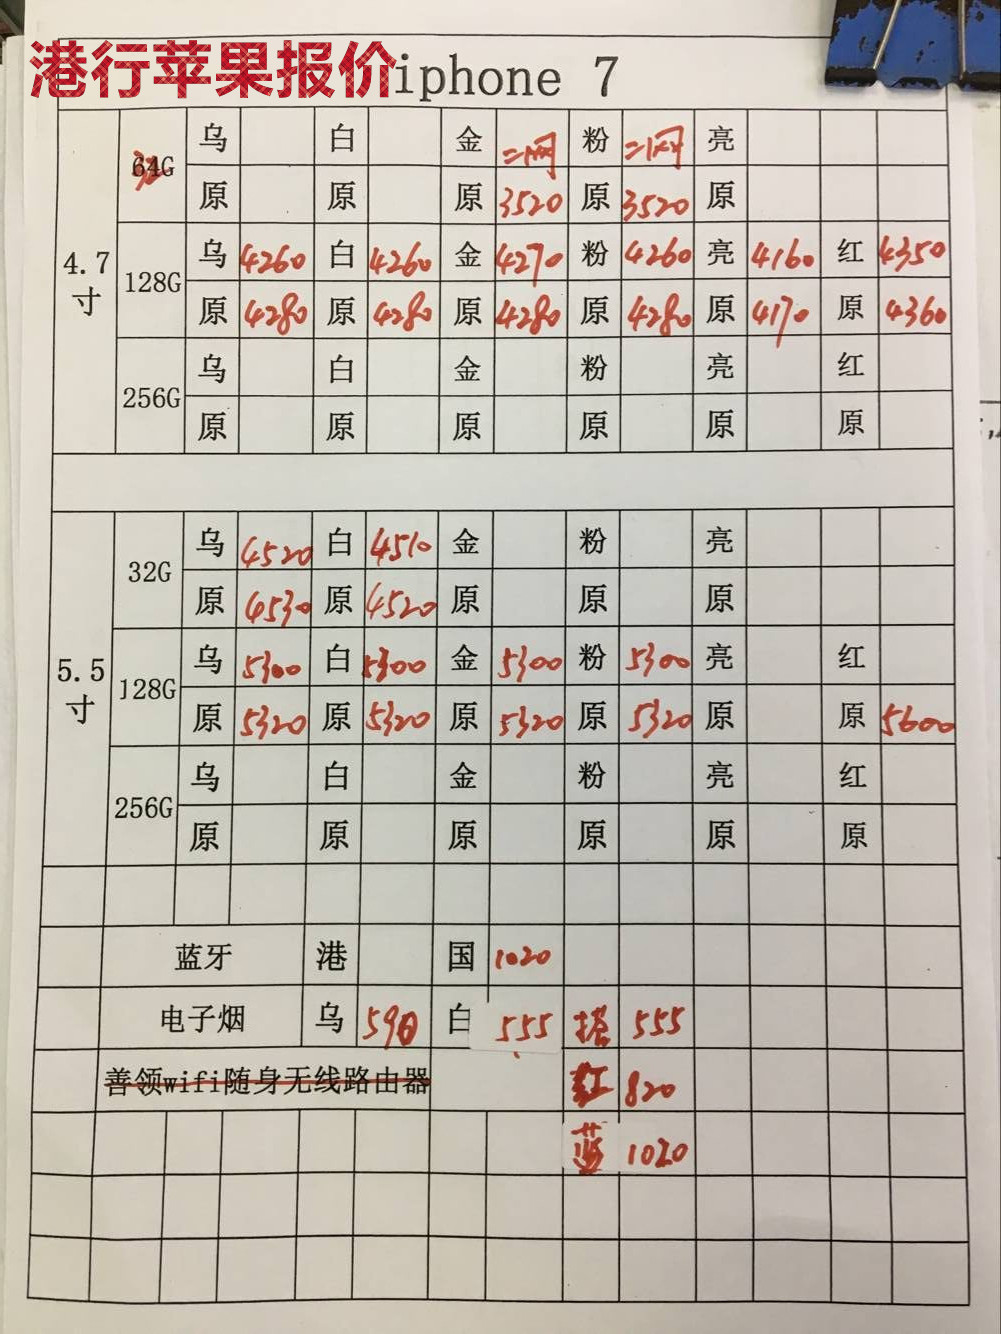 港行苹果报价 iphone 7
乌 白 金 二网 粉 二网 亮
64G
原 原 原 3520 原 3520 原
4.7寸
乌 4260 白 4260 金 4270 粉 4260 亮 4160 红 4350
128G
原 4280 原 4280 原 4280 原 4280 原 4170 原 4360
乌 白 金 粉 亮 红
256G
原 原 原 原 原 原
乌 4520 白 4510 金 粉 亮
32G
原 4530 原 4520 原 原 原
5.5寸
乌 5300 白 5300 金 5300 粉 5300 亮 红
128G
原 5320 原 5320 原 5320 原 5320 原 原 5600
乌 白 金 粉 亮 红
256G
原 原 原 原 原 原
蓝牙 港 国 1020
电子烟 乌 590 白 555 搭 555
善领wifi随身无线路由器 红 820
蓝 1020